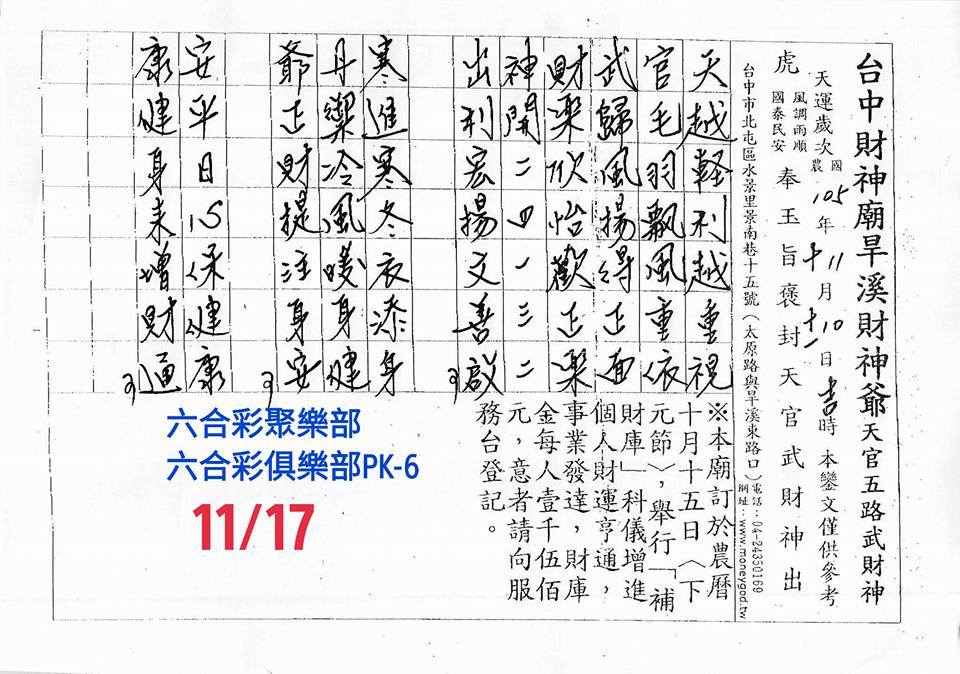 台中財神廟旱溪財神爺天官五路武財神
天運歲次 國農 105年 十11月 十一10日 吉時 本鑾文僅供參考
虎 風調雨順 國泰民安 奉玉旨褒封天官武財神出
台中市北屯區水景里景南巷十五號(太原路與旱溪東路口)
電話:04-24350169
網址:www.moneygod.tw
天越輕利越重視
官毛羽飄風重依
武歸風揚得正面
財樂欣怡歡正樂
神開二四一三二
出利宏揚文善啟
寒進寒冬衣添身
丹禦冷風暖身健
爺正財提注身安
安平日心保健康
康健身來增財通
※本廟訂於農曆
十月十五日〈下
元節〉,舉行「補
財庫」科儀增進
個人財運亨通,
事業發達,財庫
金每人壹千伍佰
元,意者請向服
務台登記。
六合彩聚樂部
六合彩俱樂部PK-6
11/17